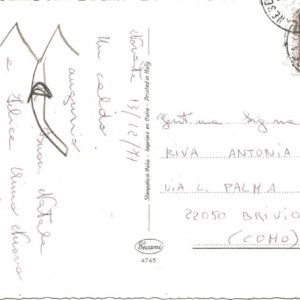 Novate 19/12/71
Un caldo
augurio
Buon Natale
e felice Anno Nuovo
Stampato in Italia - Imprimé en Italie - Printed in Italy
Cecami
4745
Gent.ma Sig.na
RIVA ANTONIA
VIA L. PALMA
22050 BRIVIO
(COMO)